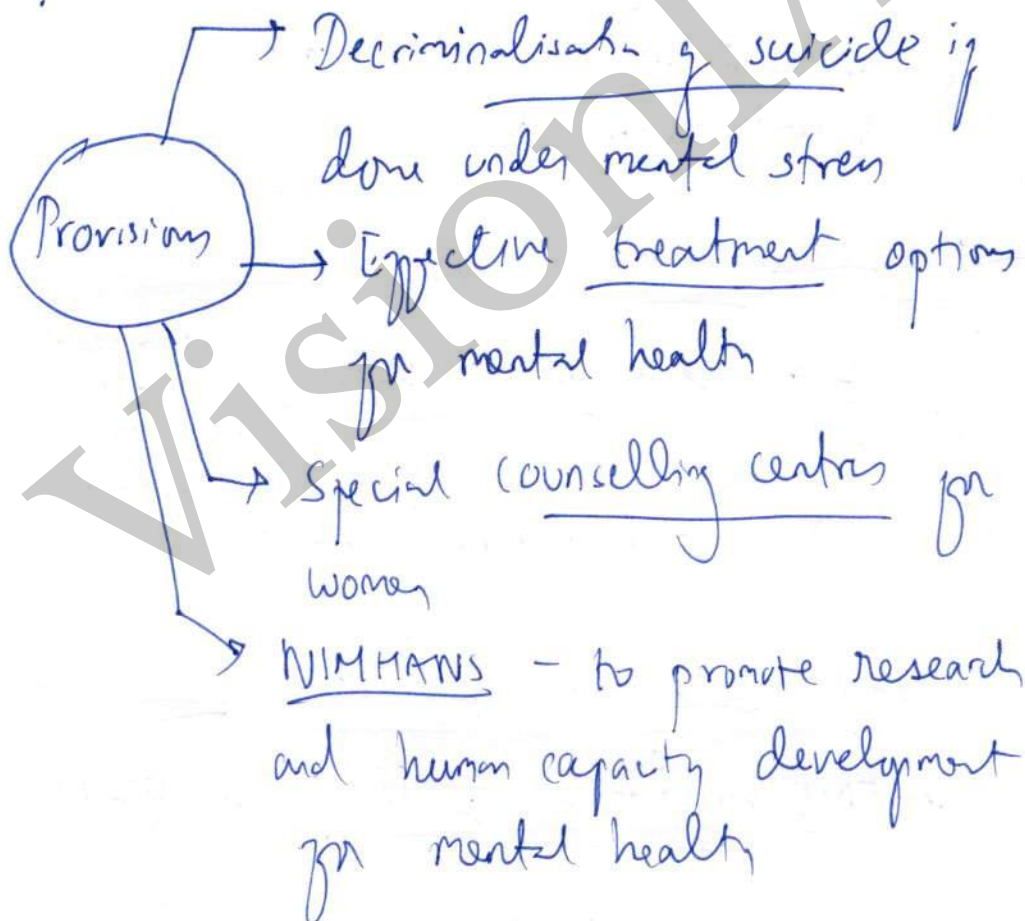 Decriminalisation of suicide if
done under mental stress
Provisions
Effective treatment options
for mental health
Special counselling centres for
women
NIMHANS - to promote research
and human capacity development
for mental health
Vision